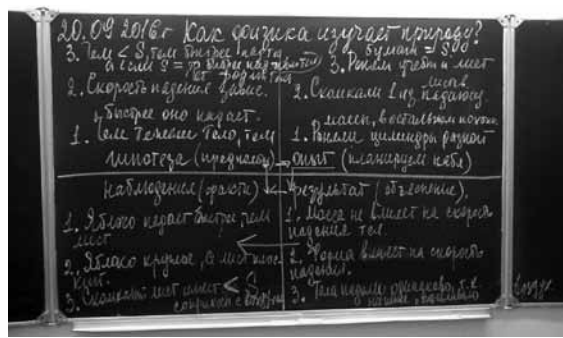 20.09.2016г Как физика изучает природу?
3. Чем < S, тем быстрее
а если S =
2. Скорость падения
быстрее оно падает.
1. Чем тяжелее тело, тем
гипотеза
бумаги = S
3. Роняем учебн и лист
2. Скомкали 1 из
массы, в остальном похожи
1. Роняли цилиндры разной
опыт (планируем
наблюдения (факты)
1. Яблоко падает быстрее, чем
лист
2. Яблоко круглое, а лист плос
кий.
3. Скомканый лист имеет < S
результат (объяснение).
1. Масса не влияет на скорость
падения тел.
2. Форма влияет на скорость
падения.
3. Тела падали одинаково, т.к.
воздух